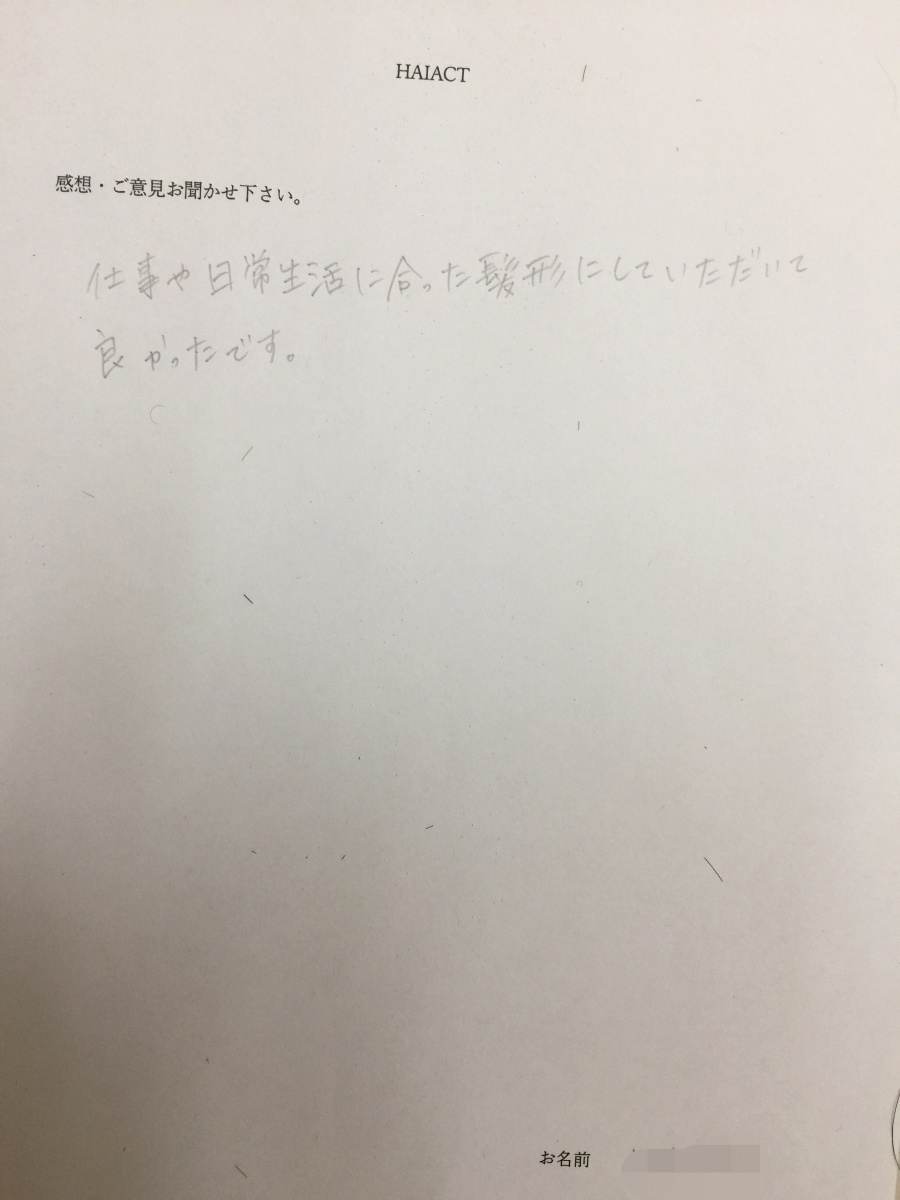 HAIACT
感想・ご意見お聞かせ下さい。
仕事や日常生活に合った髪形にしていただいて
良かったです。
お名前